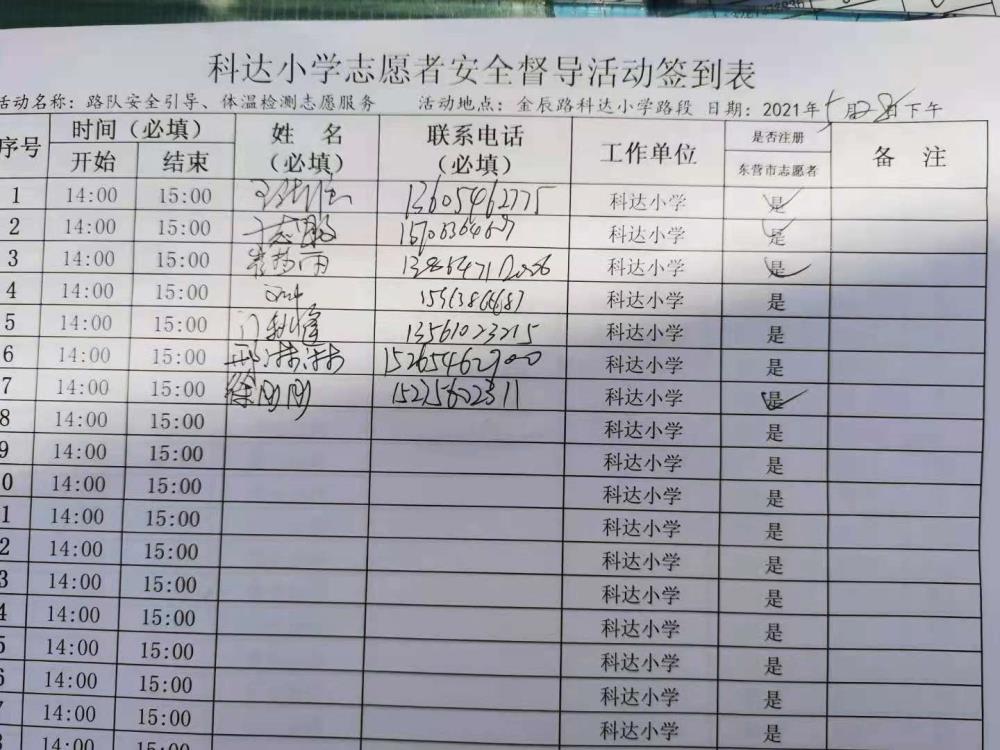 科达小学志愿者安全督导活动签到表
活动名称：路队安全引导、体温检测志愿服务 活动地点：金辰路科达小学路段 日期：2021年5月28日下午
序号 时间（必填） 姓 名（必填） 联系电话（必填） 工作单位 是否注册东营市志愿者 备 注
开始 结束
1 14:00 15:00 13605462775 科达小学 是
2 14:00 15:00 科达小学 是
3 14:00 15:00 科达小学 是
4 14:00 15:00 科达小学 是
5 14:00 15:00 13561023215 科达小学 是
6 14:00 15:00 邢沛沛 15265462900 科达小学 是
7 14:00 15:00 徐刚刚 15275602311 科达小学 是
8 14:00 15:00 科达小学 是
9 14:00 15:00 科达小学 是
0 14:00 15:00 科达小学 是
1 14:00 15:00 科达小学 是
2 14:00 15:00 科达小学 是
3 14:00 15:00 科达小学 是
4 14:00 15:00 科达小学 是
5 14:00 15:00 科达小学 是
6 14:00 15:00 科达小学 是
7 14:00 15:00 科达小学 是
14:00 15:00